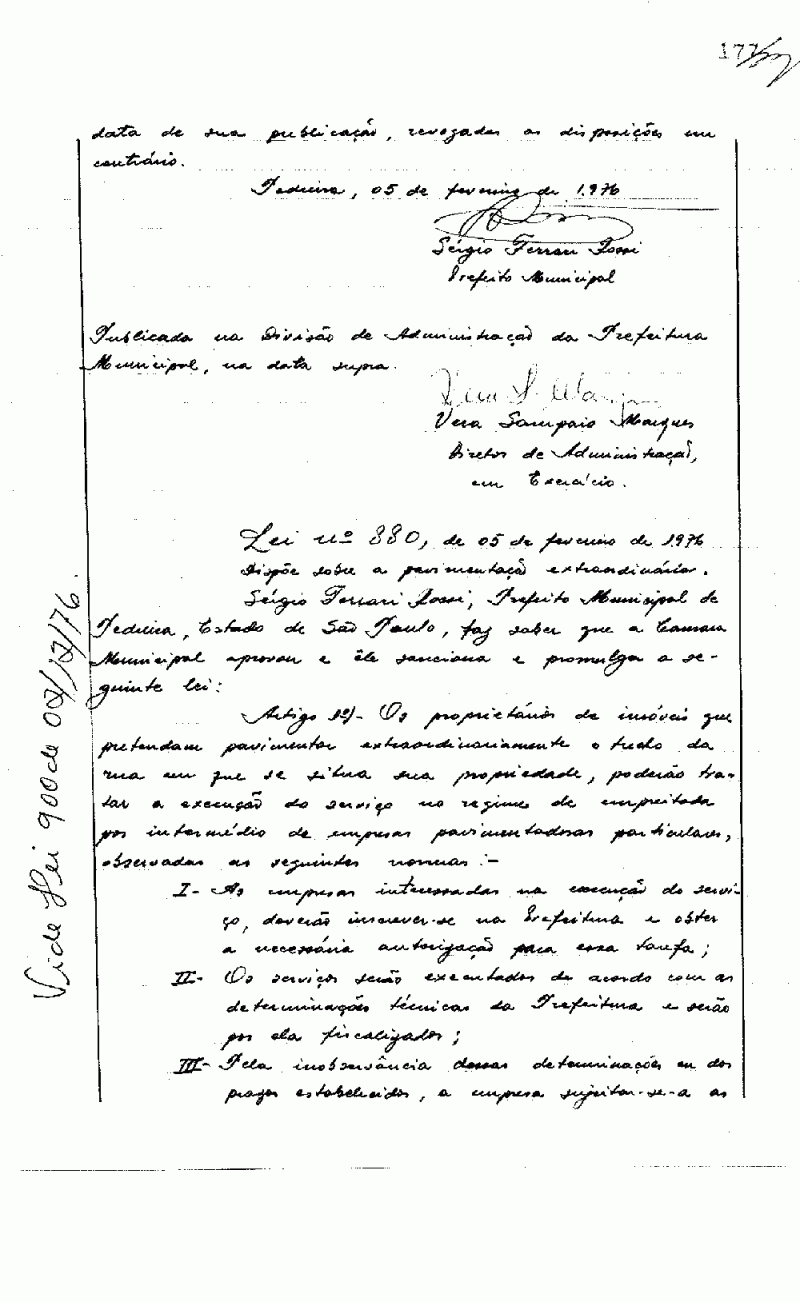 177
data de sua publicação, revogadas as disposições em
contrário.
Pedreira, 05 de fevereiro de 1.976
Sérgio Ferrari Rossi
Prefeito Municipal
Publicada na Divisão de Administração da Prefeitura
Municipal, na data supra.
Vera S. Marques
Vera Sampaio Marques
Diretor de Administração,
em Exercício.
Lei nº 880, de 05 de fevereiro de 1.976
Dispõe sobre a pavimentação extraordinária.
Sérgio Ferrari Rossi, Prefeito Municipal de
Pedreira, Estado de São Paulo, faz saber que a Câmara
Municipal aprovou e êle sanciona e promulga a se-
guinte lei:
Artigo 1º)- Os proprietários de imóveis que
pretendam pavimentar extraordinariamente o trecho da
rua em que se situa sua propriedade, poderão tra-
tar a execução do serviço no regime de empreitada
por intermédio de empresas pavimentadoras particulares,
observadas as seguintes normas:-
I- As empresas interessadas na execução do servi-
ço, deverão inscrever-se na Prefeitura e obter
a necessária autorização para essa tarefa;
II- Os serviços serão executados de acordo com as
determinações técnicas da Prefeitura e serão
por ela fiscalizados;
III- Pela inobservância dessas determinações ou dos
prazos estabelecidos, a empresa sujeitar-se-a as
Vide Lei 900 de 02/12/76.